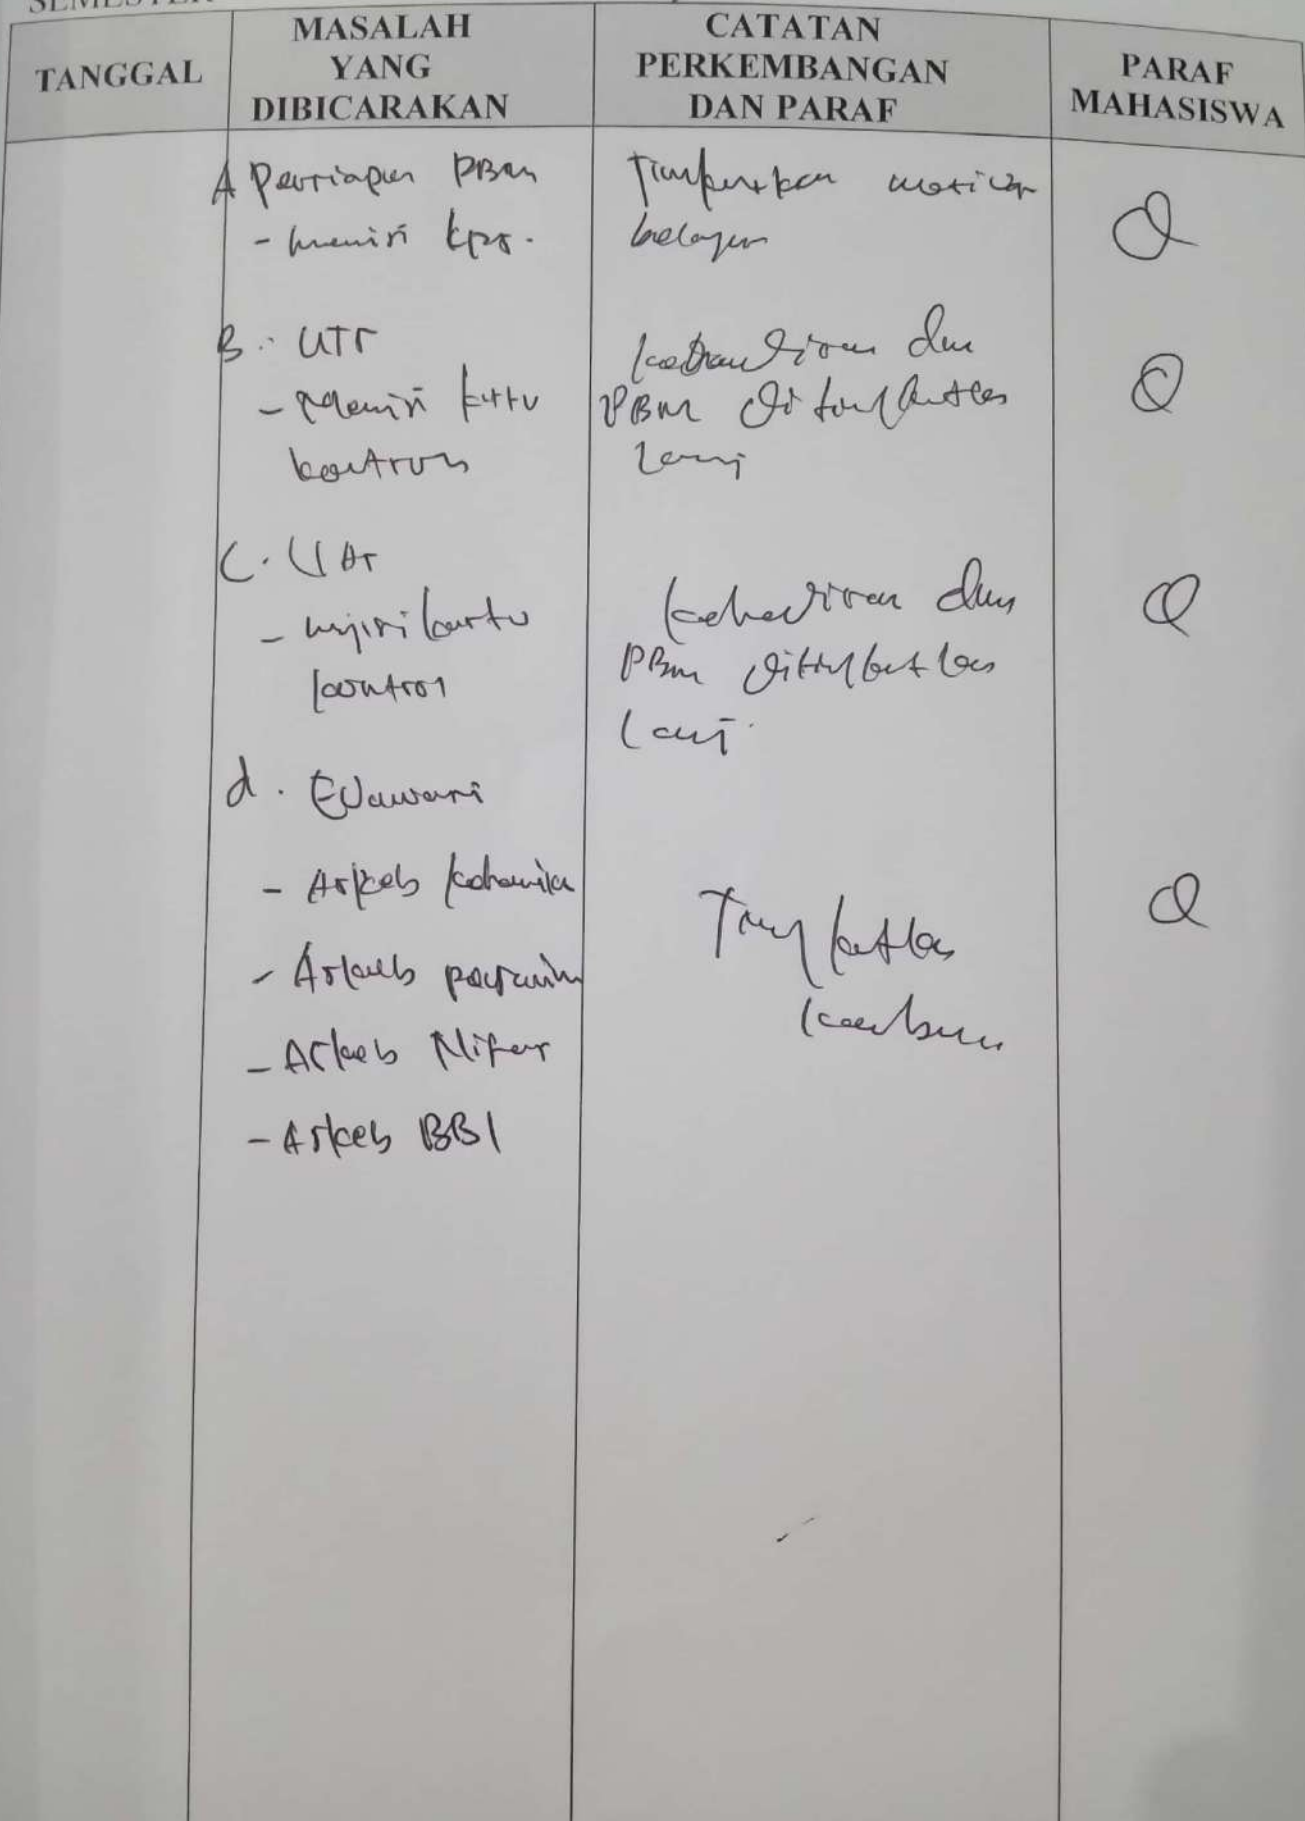 SEMESTER
TANGGAL
MASALAH
YANG
DIBICARAKAN
CATATAN
PERKEMBANGAN
DAN PARAF
PARAF
MAHASISWA
A Persiapan PBM
- mengisi krs.
Tingkatkan motivasi
belajar
B. UTS
- Mengisi kartu
kontrol
kehadiran dan
PBM ditingkatkan
lagi
C. UAS
- mengisi kartu
kontrol
kehadiran dan
PBM ditingkatkan
lagi.
d. Evaluasi
- Askeb kehamilan
- Askeb persalinan
- Askeb Nifas
- Askeb BBL
Tingkatkan